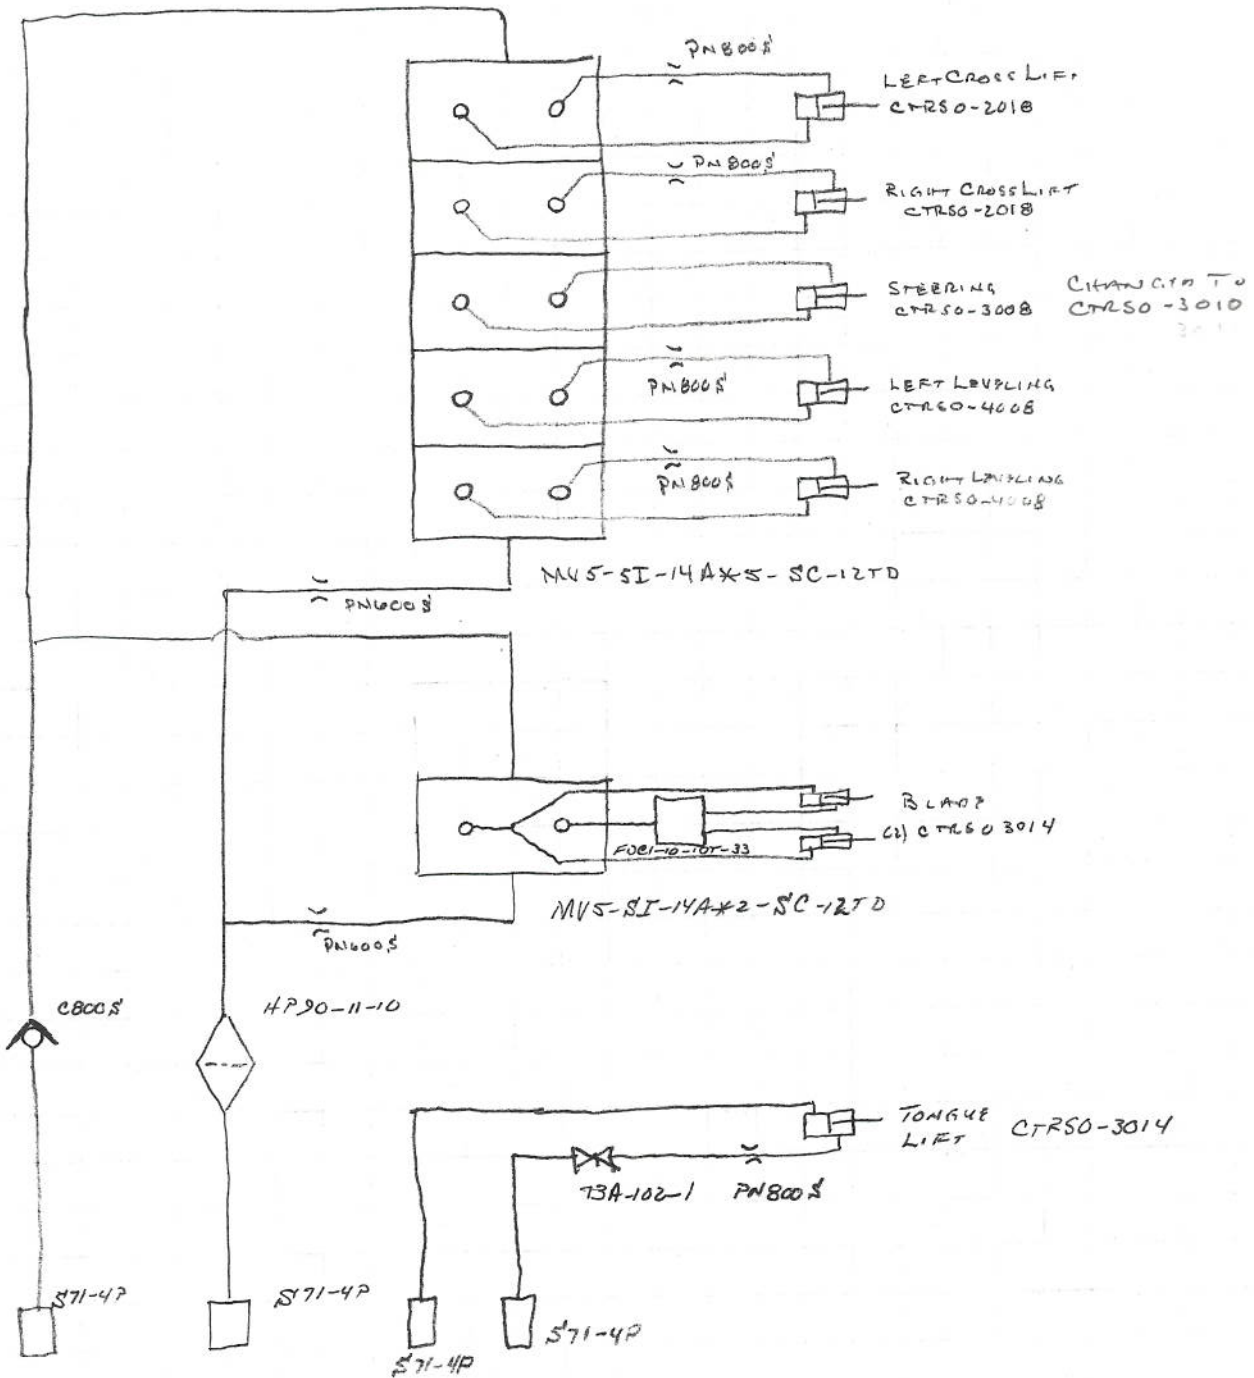 PN800S
LEFT CROSS LIFT
CTRSO-2018
PN800S
RIGHT CROSS LIFT
CTRSO-2018
STEERING
CTRSO-3008
CHANGED TO
CTRSO-3010
PN800S
LEFT LEVELING
CTRSO-4008
PN800S
RIGHT LEVELING
CTRSO-4008
MV5-SI-14A*5-SC-12TD
PN600S
BLADE
(2) CTRSO 3014
FDC1-10-10T-33
MV5-SI-14A*2-SC-12TD
PN600S
C800S
HP90-11-10
TONGUE
LIFT
CTRSO-3014
T3A-102-1
PN800S
S71-4P
S71-4P
S71-4P
S71-4P